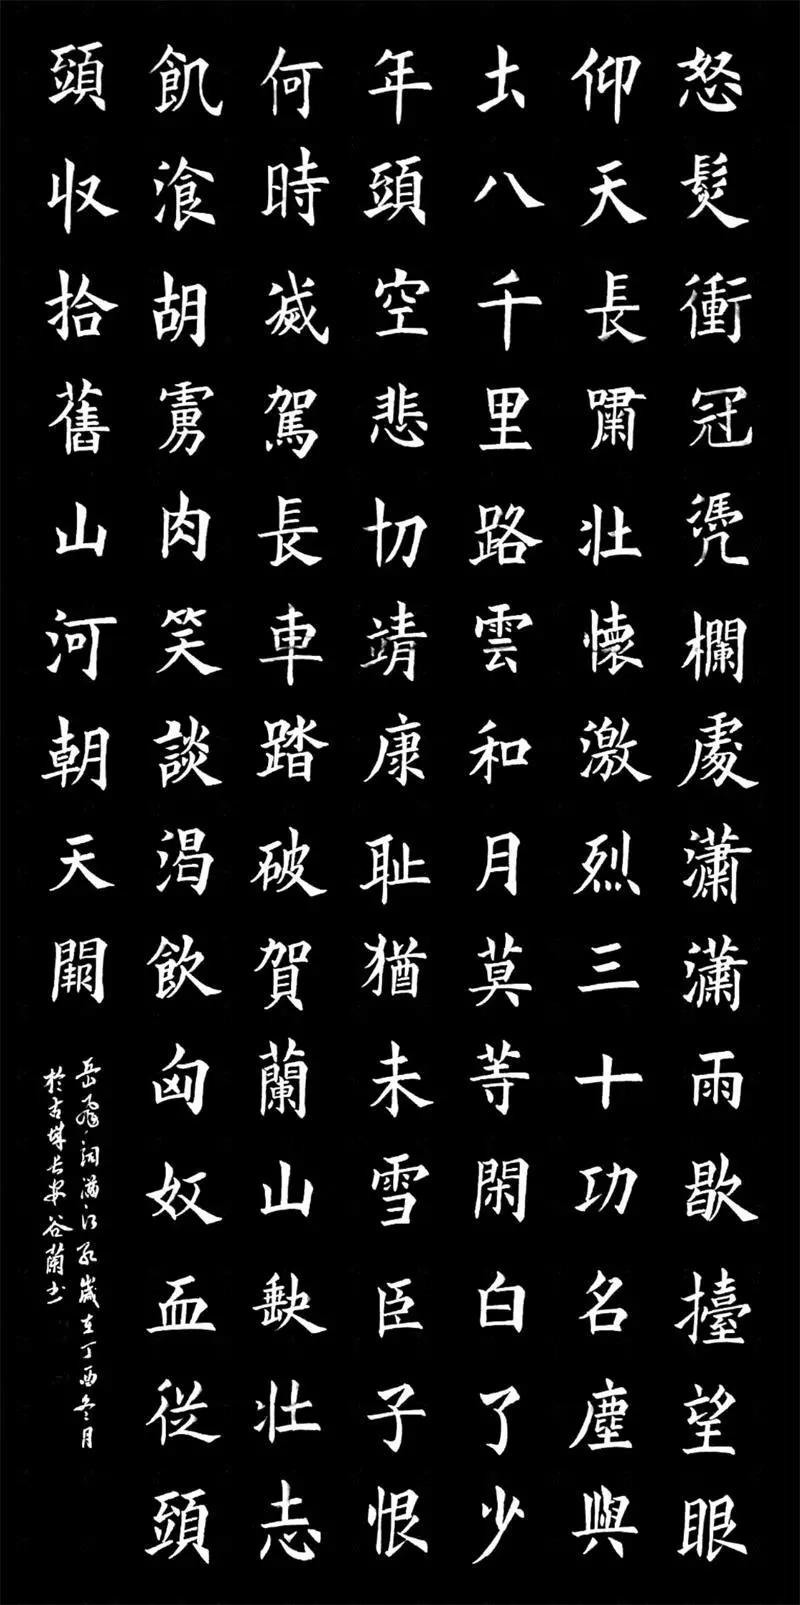 怒髮衝冠凴欄處瀟瀟雨歇擡望眼
仰天長嘯壯懷激烈三十功名塵與
土八千里路雲和月莫等閑白了少
年頭空悲切靖康耻猶未雪臣子恨
何時滅駕長車踏破賀蘭山缺壯志
飢湌胡虜肉笑談渴飲匈奴血從頭
頭收拾舊山河朝天闕
岳飛詞滿江紅歲在丁酉冬月
於古城長安谷蘭書